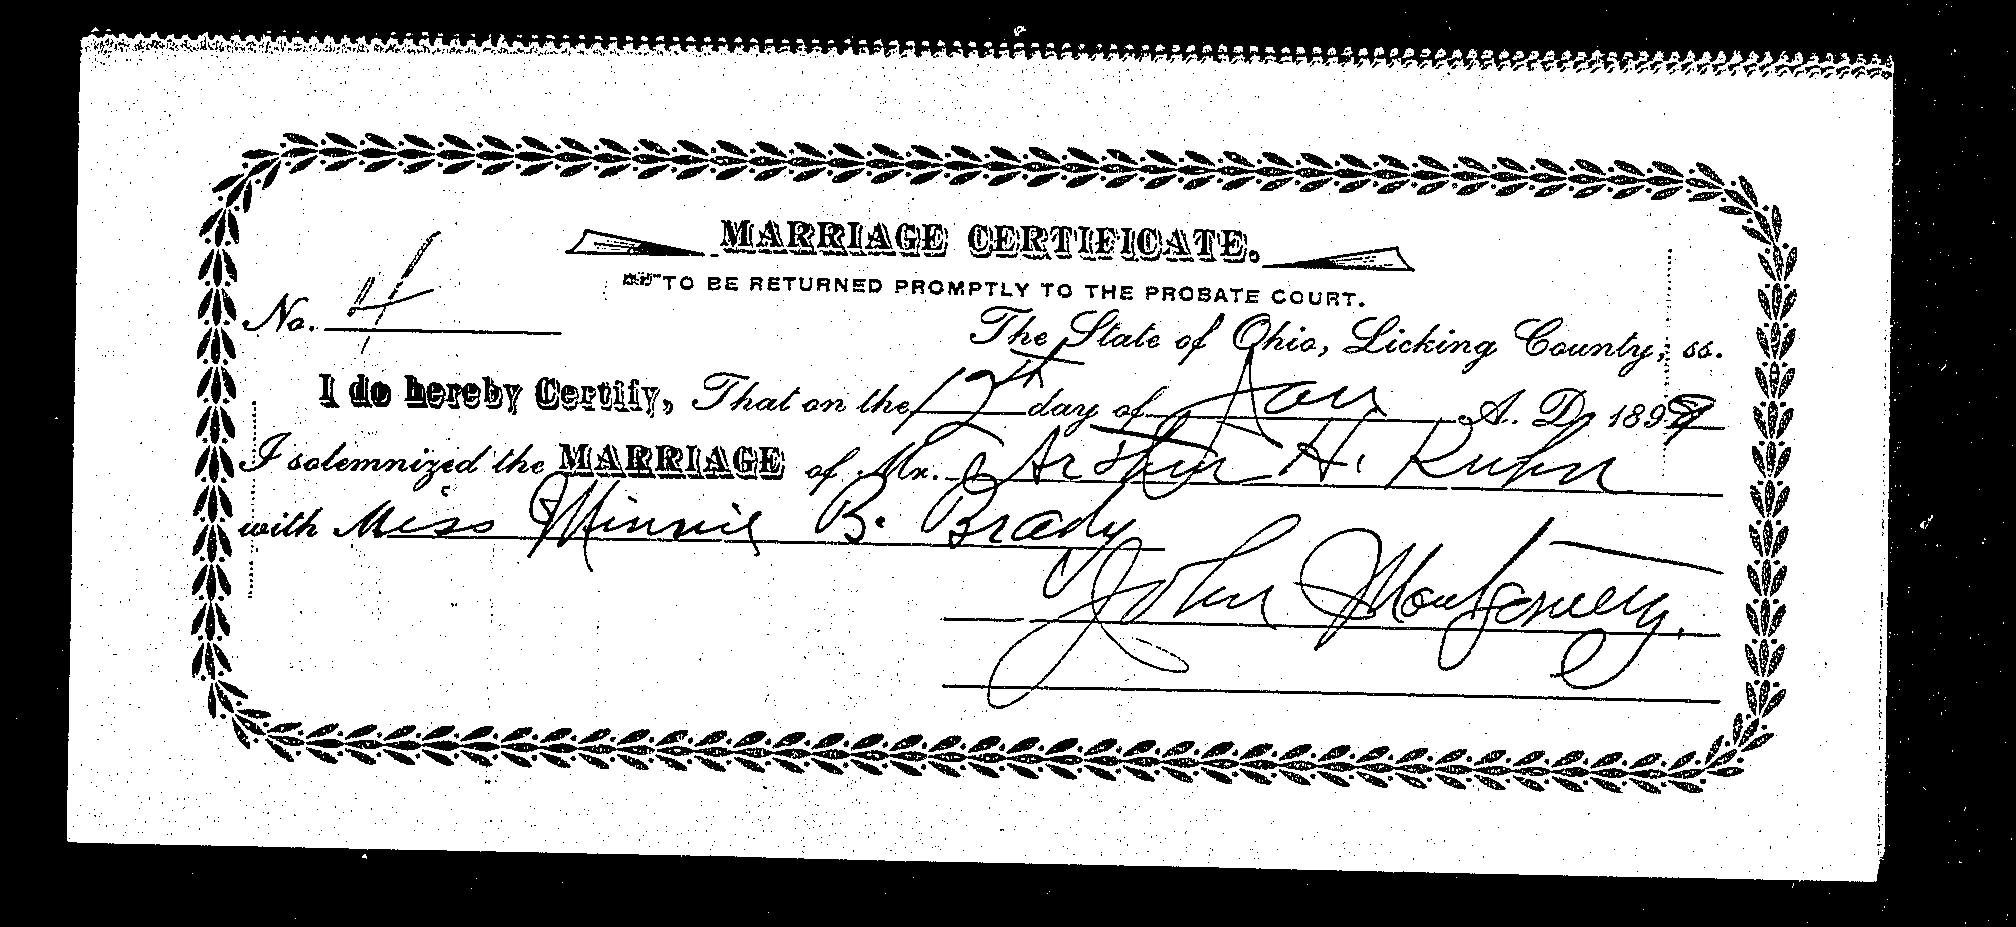 MARRIAGE CERTIFICATE.
TO BE RETURNED PROMPTLY TO THE PROBATE COURT.
No. 4
The State of Ohio, Licking County, ss.
I do hereby Certify, That on the 12th day of Jan A. D. 189
I solemnized the MARRIAGE of Mr. Arthur H. Kuhn
with Miss Minnie B. Brady
John Montgomery.